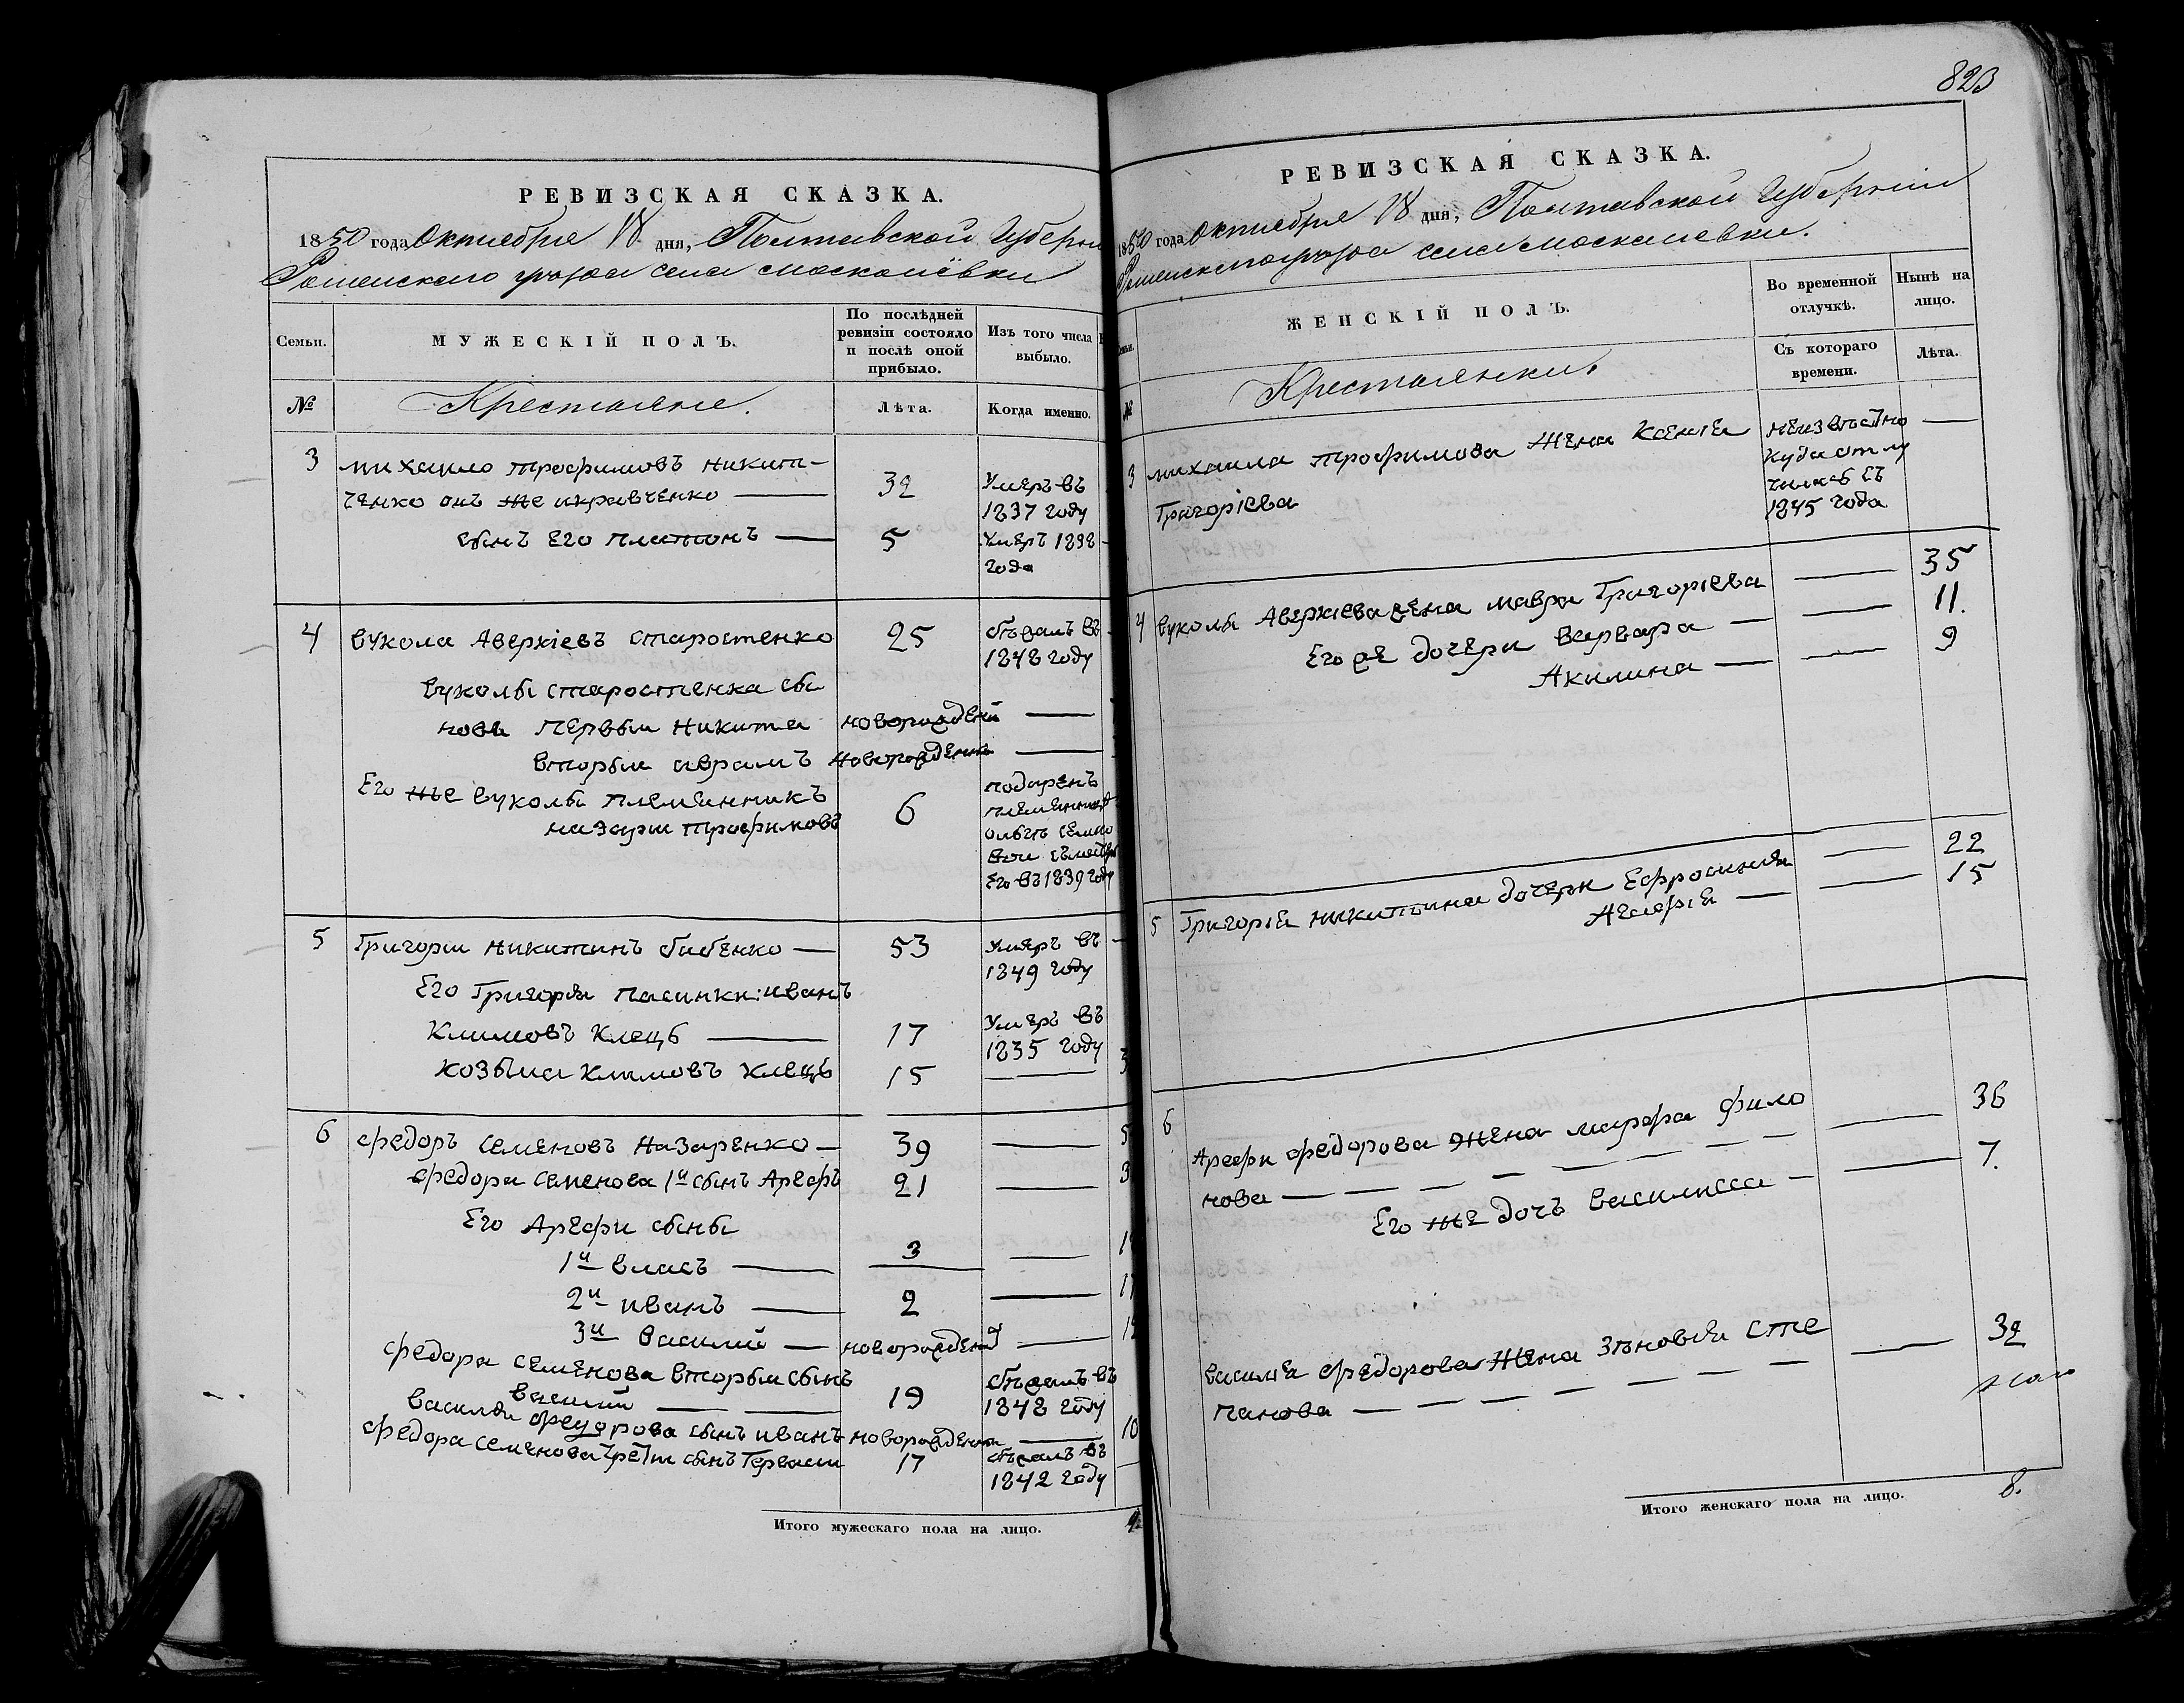 823
РЕВИЗСКАЯ СКАЗКА.
1850 года Октября 18 дня, Полтавской Губерн
Роменского уезда села москалёвки
Семьи.
МУЖЕСКІЙ ПОЛЪ.
По послѣдней
ревизіи состояло
и послѣ оной
прибыло.
Изъ того числа
выбыло.
№
Крестьяне.
Лѣта.
Когда именно.
3 михаило трофимовъ никит-
ченко онъ же икравченко — 32 Умеръ въ
1837 году
сынъ Его платонъ — 5 умеръ 1838
года
4 вукола Аверкіевъ старостенко 25 бѣжалъ въ
1848 году
вуколы старостенка сы
новя первыи никита новорожденый —
вторыи аврамъ новорожденыи —
Его же вуколы племянникъ 6 подаренъ
назарии трофимовъ
Его въ 1839 году
5 Григории никитинъ бибенко — 53 умеръ въ
1849 году
Его Григория пасинки: иванъ
климовъ клецъ — 17 умеръ въ
1835 году
козьма климовъ клецъ 15 —
6 федоръ семеновъ назаренко — 39 —
федора семенова 1й сынъ Арефъ 21 —
Его Арефи сыны
1й власъ — 3 —
2й иванъ — 2 —
3й василий — новорожденый —
федора семенова вторыи сынъ
василий — 19 бѣжалъ въ
1848 году
василия федорова сынъ иванъ новорожденыи —
федора семенова третии сынъ Гервасии 17 бѣжалъ въ
1842 году
Итого мужескаго пола на лицо. 9
РЕВИЗСКАЯ СКАЗКА.
1850 года Октября 18 дня, Полтавской Губернии
Роменского уезда села москалевки.
ЖЕНСКІЙ ПОЛЪ.
Во временной
отлучкѣ.
Нынѣ на
лицо.
Съ котораго
времени.
Лѣта.
№
Крестьянки.
3 михаила трофимова жена ксения неизвѣстно —
Григоріева куда отлу
чилась съ
1845 года
4 вуколы Аверкіева жена мавра Григоріева — 35
Его же дочери варвара — — 11.
Акилина — — 9
5 Григорія никитина дочери Ефросиния — 22
Агафія — — 15
6 Арефи федорова жена марфа фило — 36
нова —
Его же дочъ василисса — — 7.
василия федорова жена зѣновия сте — 32
панова —
Итого женскаго пола на лицо. 8.